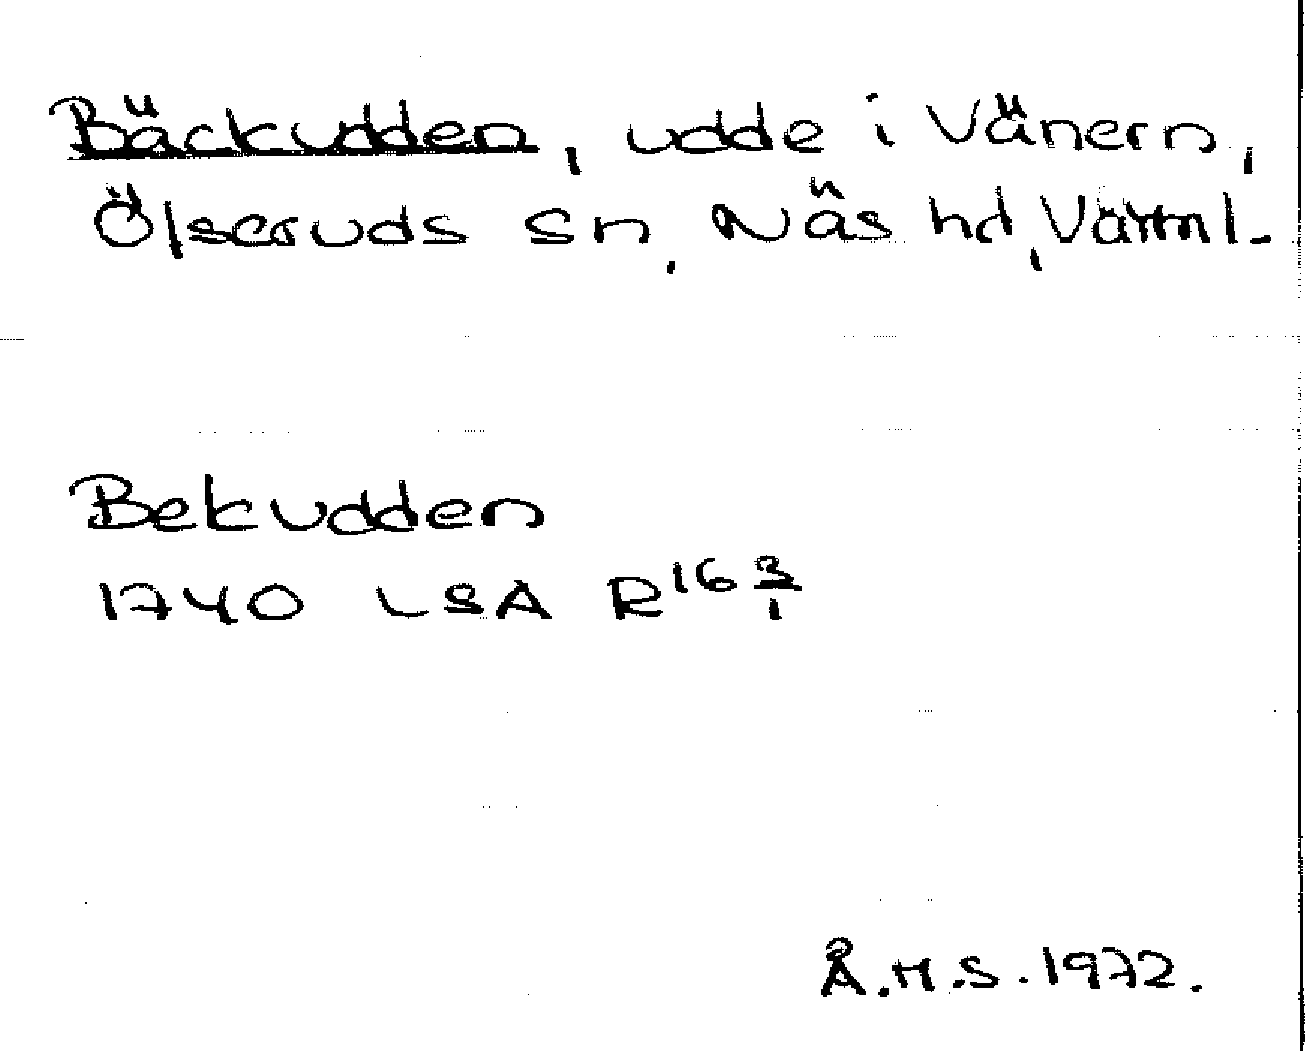 Bäckudden, udde i Vänern,
Ölseruds sn, Näs hd, Värml.
Bekudden
1740 LSA R16 3/1
Å.H.S. 1972.